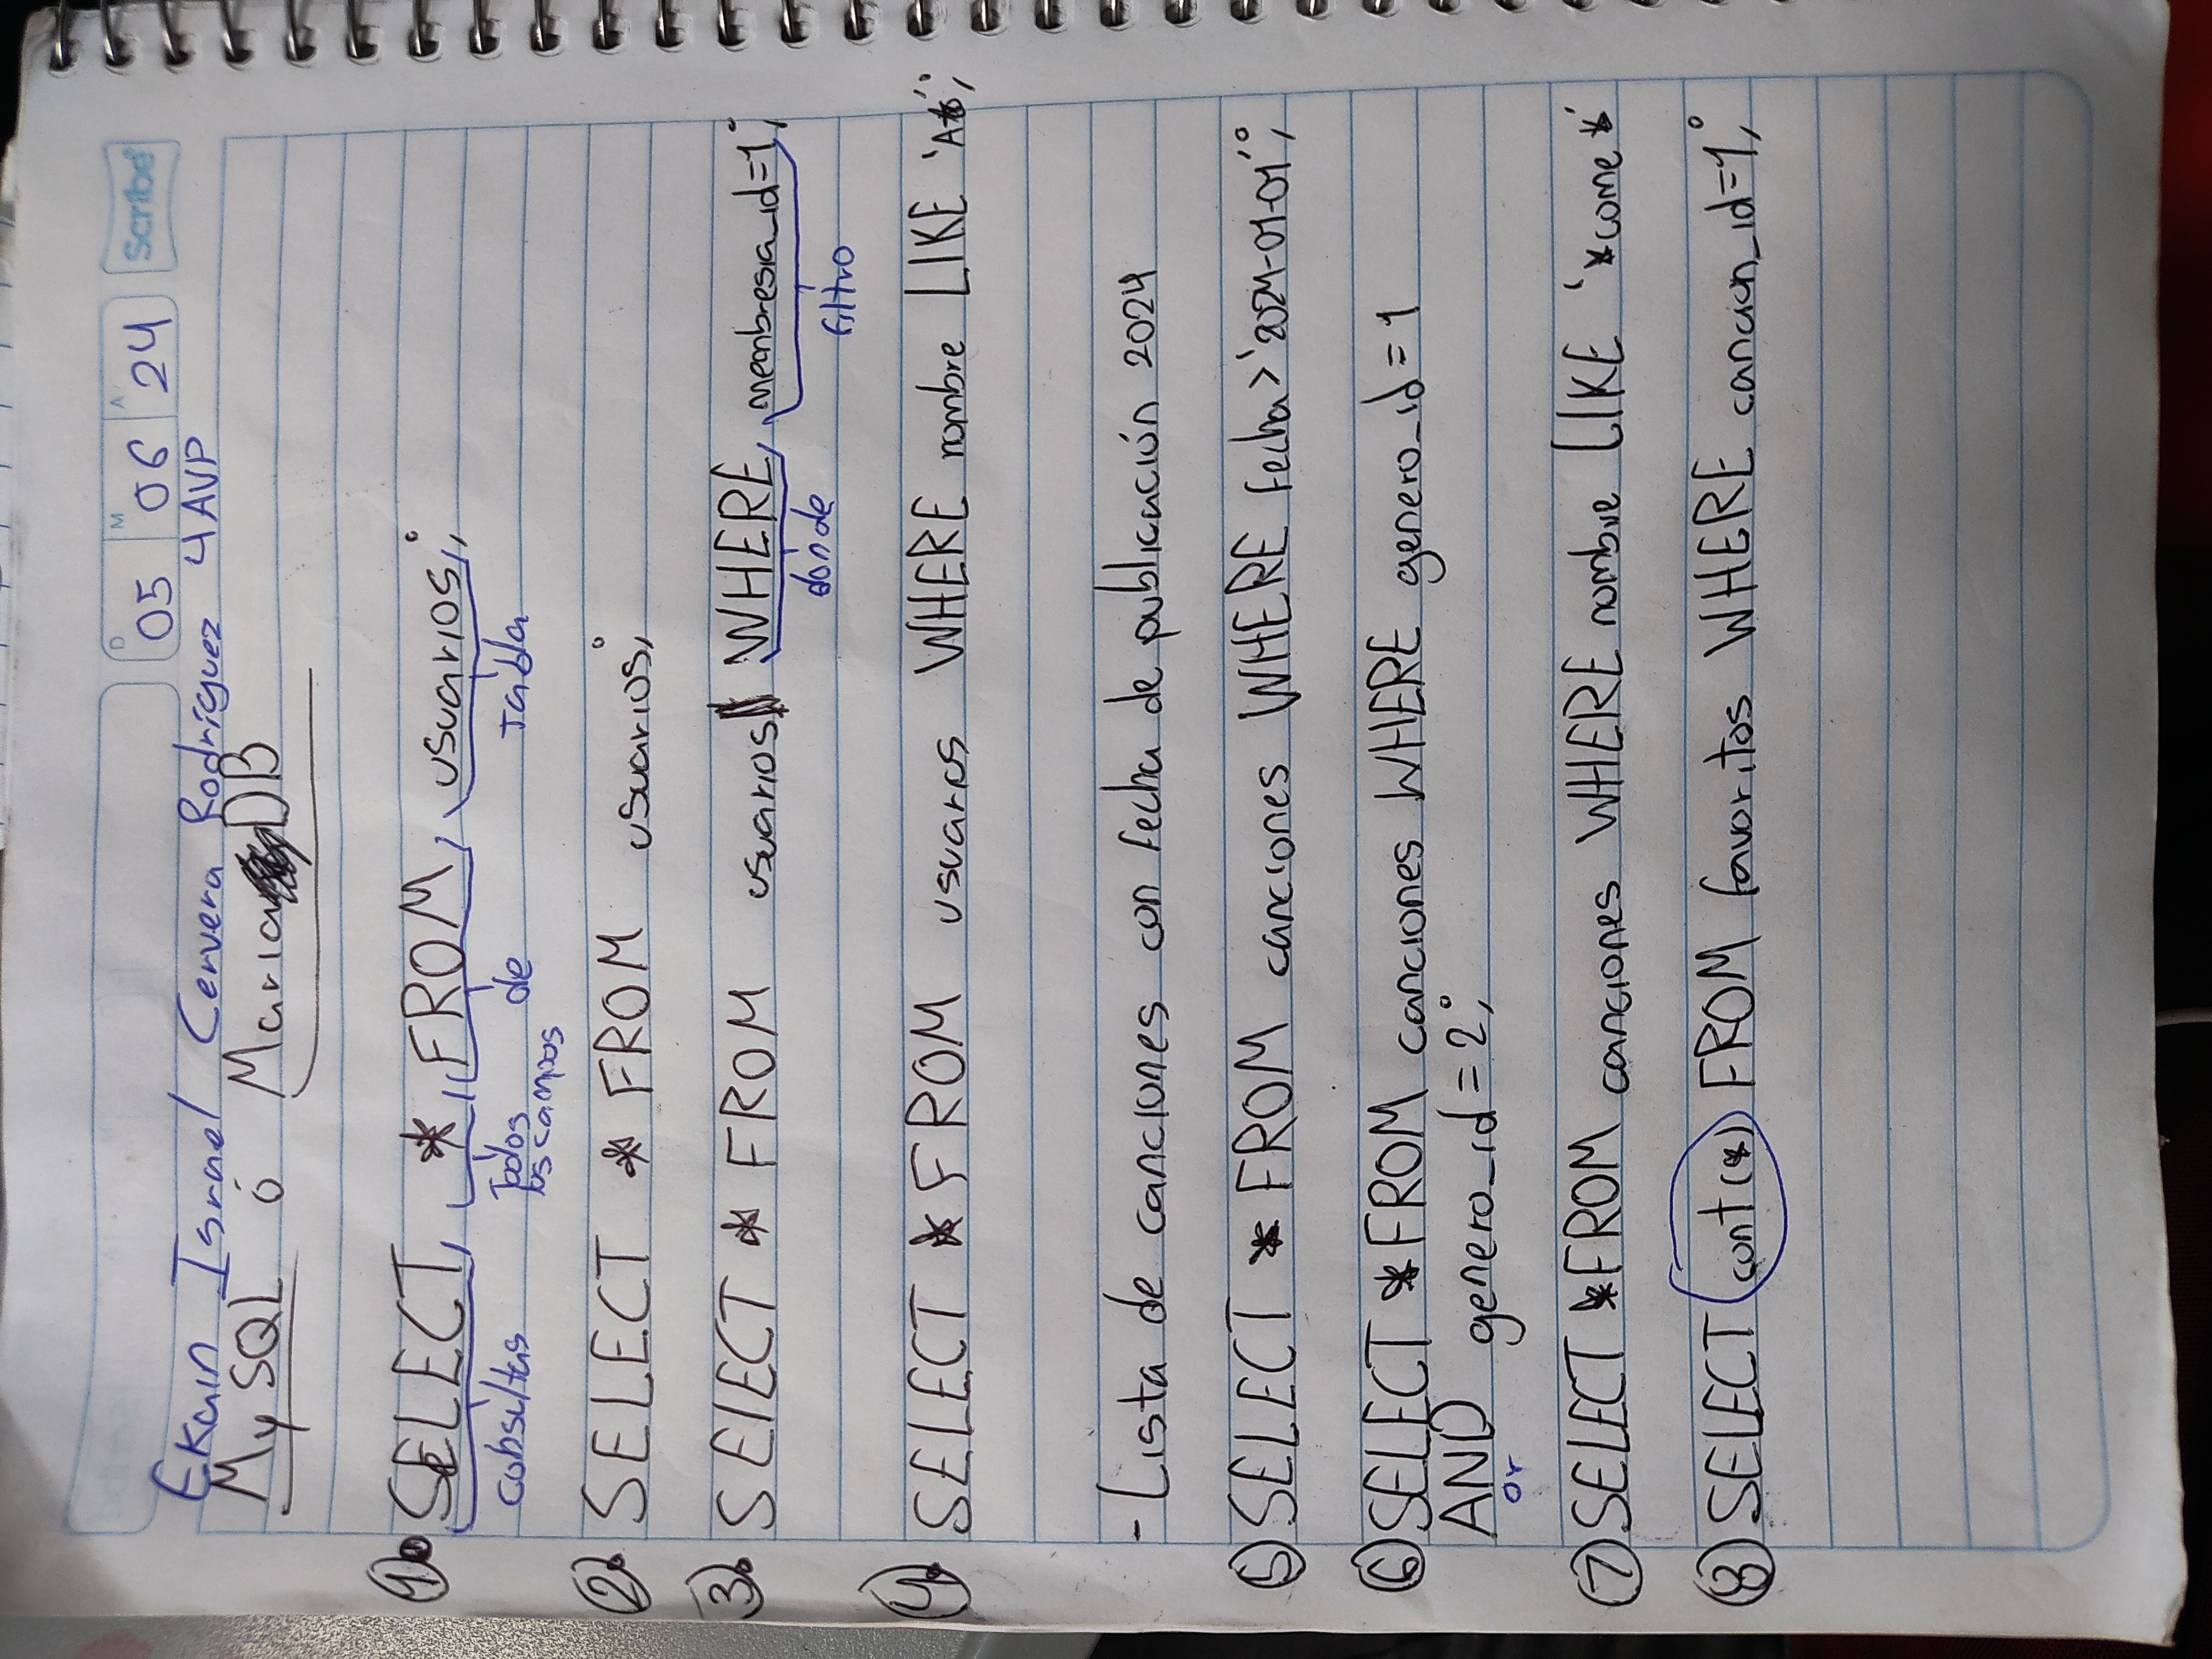 D 05 M 06 A 24 Scribe
Ekain Israel Cervera Rodríguez 4AVP
MySQL ó Maria DB
1. SELECT * FROM usuarios;
cobsultas Todos de Tabla
los campos
2. SELECT * FROM usuarios;
3. SElECT * FROM usuarios WHERE membresia_id=1;
donde filtro
4. SELECT * FROM usuarios WHERE nombre LIKE 'A*';
- Lista de canciones con fecha de publicación 2024
5 SELECT * FROM canciones WHERE fecha>'2024-01-01';
6 SELECT * FROM canciones WHERE genero_id=1
AND genero_id=2;
or
7 SELECT * FROM canciones WHERE nombre LIKE '*come*'
8 SELECT cont(*) FROM favoritos WHERE cancion_id=1;